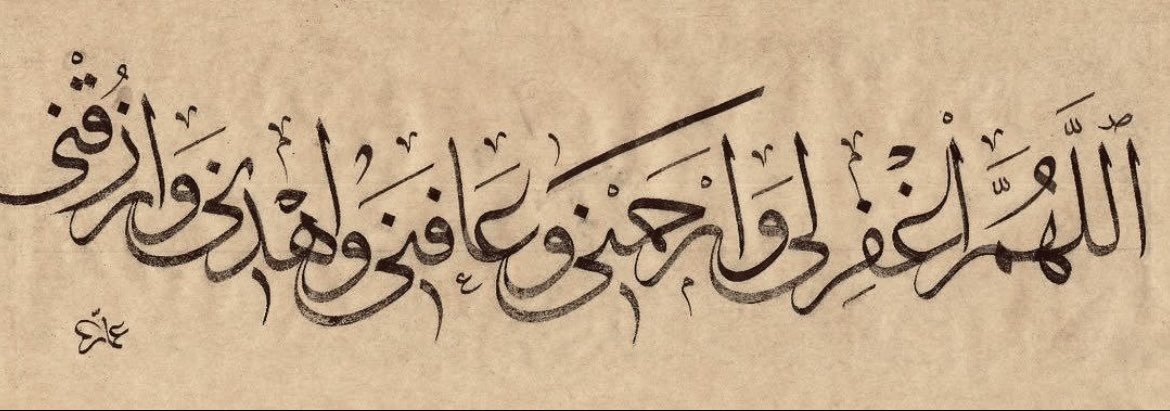 اللَّهُمَّ اغْفِرْ لِي وَارْحَمْنِي وَعَافِنِي وَاهْدِنِي وَارْزُقْنِي